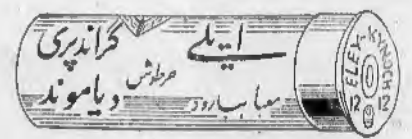 ايلي گراندپری
خرطوش دياموند
معبا ببارود
ELEY-KYNOCH
12 12